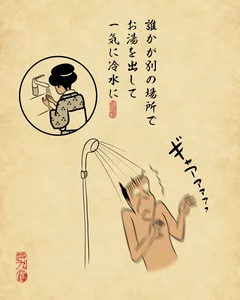 誰かが別の場所で
お湯を出して
一気に冷水に
ギャアアアアッ